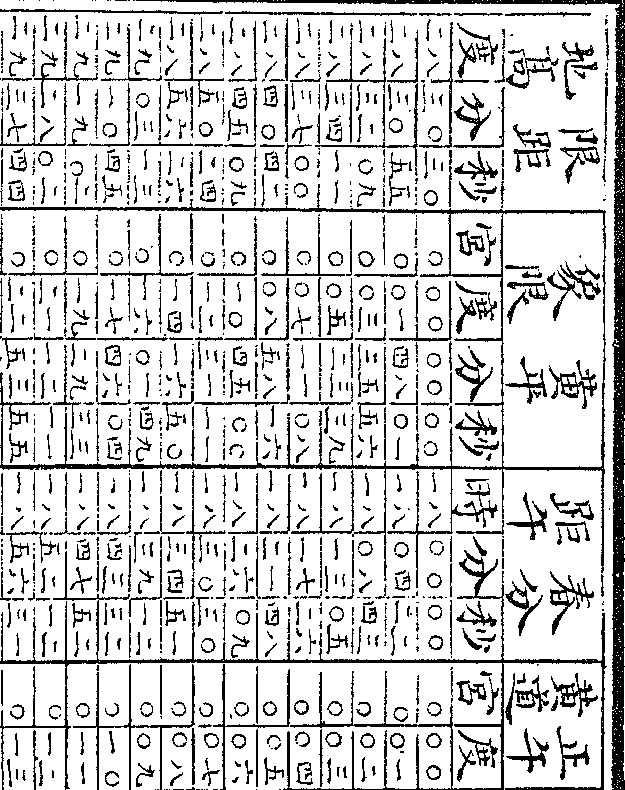 地高 限距
象限 黃平
距午 春分
黃道 正午
度 分 秒 宮 度 分 秒 時 分 秒 宮 度
二八 三〇 三〇 〇 〇〇 〇〇 〇〇 一八 〇〇 〇〇 〇 〇〇
二八 三〇 五五 〇 〇一 四八 〇一 一八 〇四 二二 〇 〇一
二八 三二 〇九 〇 〇三 三五 五六 一八 〇八 四三 〇 〇二
二八 三四 一一 〇 〇五 二三 三九 一八 一三 〇五 〇 〇三
二八 三七 〇〇 〇 〇七 一一 〇八 一八 一七 二六 〇 〇四
二八 四〇 四二 〇 〇八 五八 一六 一八 二一 四八 〇 〇五
二八 四五 〇九 〇 一〇 四五 〇〇 一八 二六 〇九 〇 〇六
二八 五〇 二四 〇 一二 三一 一一 一八 三〇 三〇 〇 〇七
二八 五六 二六 〇 一四 一六 五〇 一八 三四 五一 〇 〇八
二九 〇三 一三 〇 一六 〇一 四九 一八 三九 一二 〇 〇九
二九 一〇 四五 〇 一七 四六 〇四 一八 四三 三二 〇 一〇
二九 一九 〇二 〇 一九 二九 三三 一八 四七 五二 〇 一一
二九 二八 〇二 〇 二一 一二 一一 一八 五二 一二 〇 一二
二九 三七 四四 〇 二二 五三 五五 一八 五六 三一 〇 一三